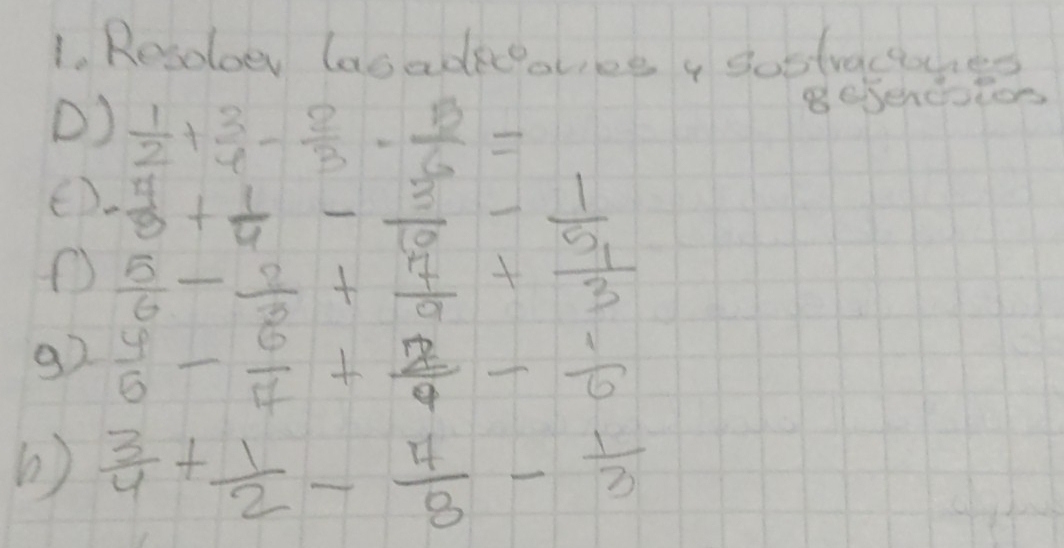 1. Resolver las adiciones y sostraciones
8 ejercisios
D) 1/2 + 3/4 - 2/3 - 5/6 =
e) - 7/8 + 1/4 - 3/10 - 1/5
f) 5/6 - 2/3 + 7/9 + 1/3
g) 4/5 - 6/7 + 2/9 - 1/6
h) 3/4 + 1/2 - 7/8 - 1/3